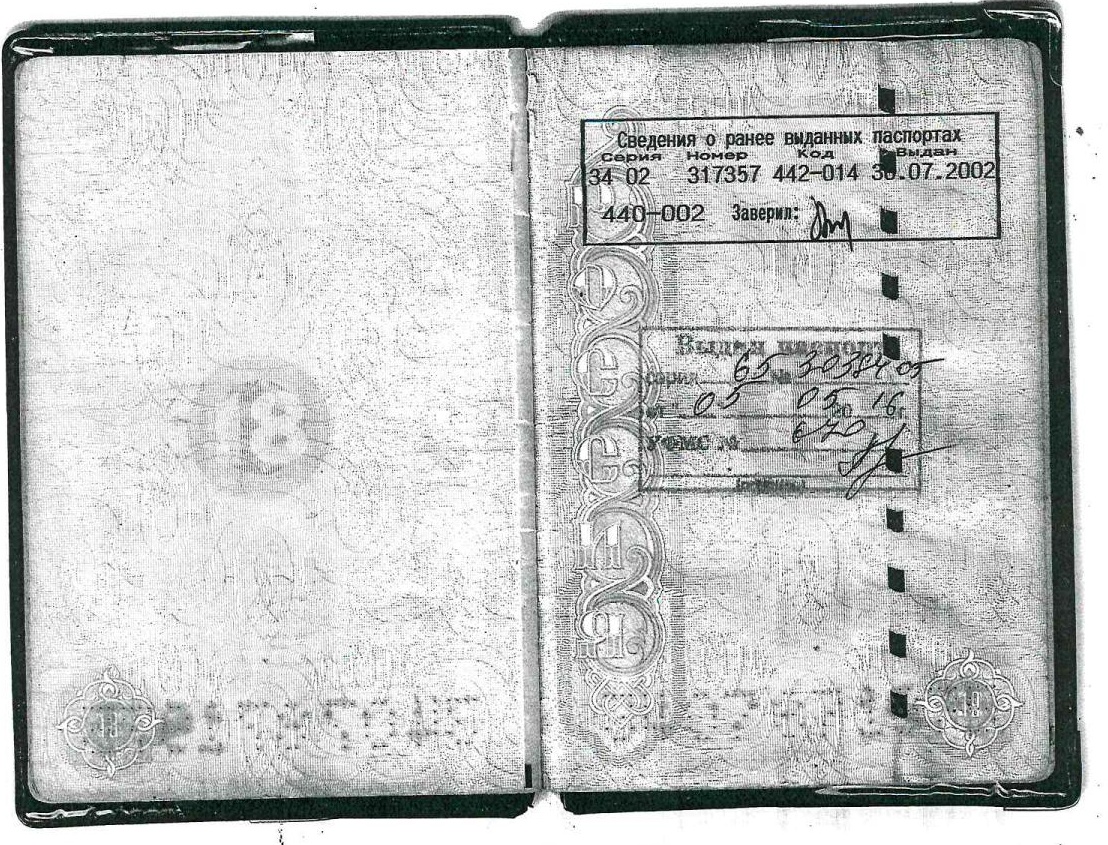 Сведения о ранее выданных паспортах
Серия Номер Код Выдан
34 02 317357 442-014 30.07.2002
440-002 Заверил:
Выдан паспорт
серия 65 №
от 05 05 20 16 г.
УФМС № 670
РОССИЯ
18
19